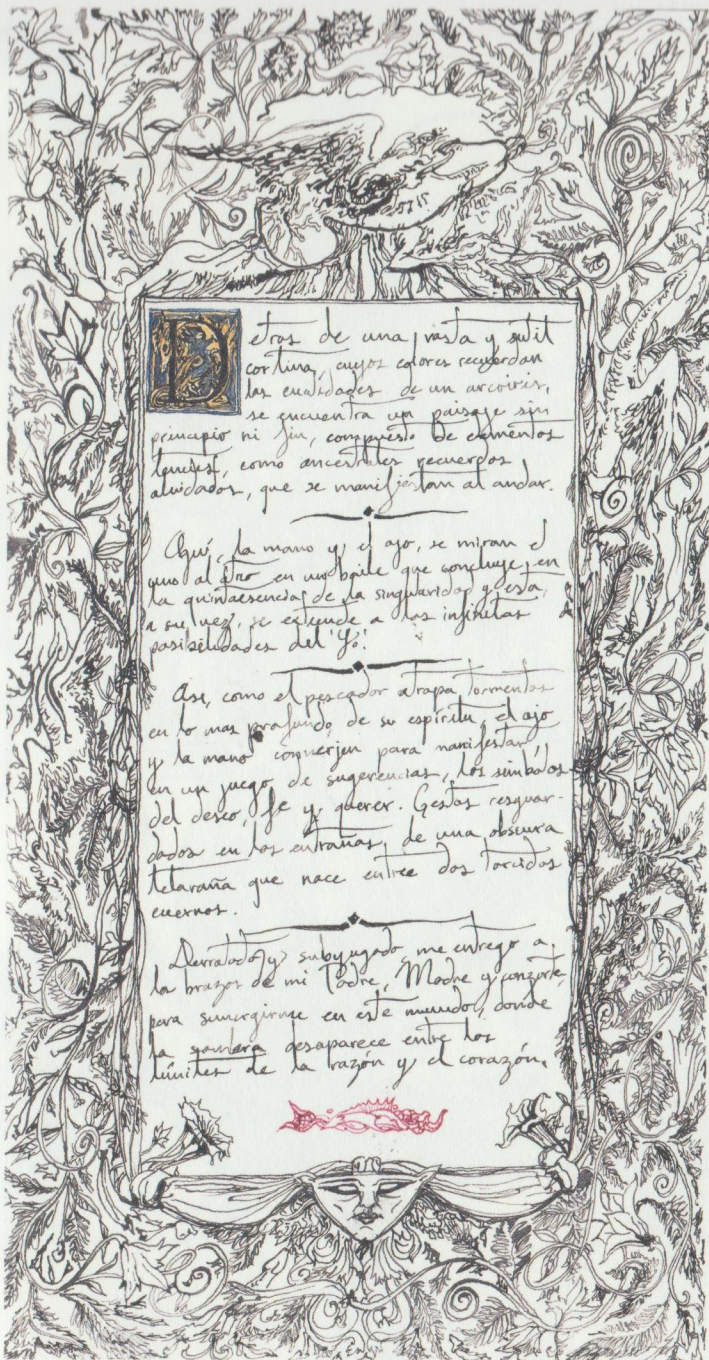 Detras de una vasta y sutil
cortina, cuyos colores recuerdan
las cualidades de un arcoiris,
se encuentra un paisaje sin
principio ni fin, compuesto de elementos
tenues, como ancestrales recuerdos
olvidados, que se manifiestan al andar.
Aquí, la mano y el ojo, se miran el
uno al otro en un baile que concluye en
la quintaesencia de la singularidad y esta,
a su vez, se extiende a las infinitas
posibilidades del 'Yo'.
Asi, como el pescador atrapa tormentas
en lo mas profundo de su espíritu, el ojo
y la mano convergen para manifestar,
en un juego de sugerencias, los simbolos
del deseo, fe y querer. Gestos resguar-
dados en las entrañas de una obscura
telaraña que nace entre dos torcidos
cuernos.
Derrotado y subyugado me entrego a
la brazos de mi Padre, Madre y consorte
para sumergirme en este mundo, donde
la sombra desaparece entre los
límites de la razón y el corazón.